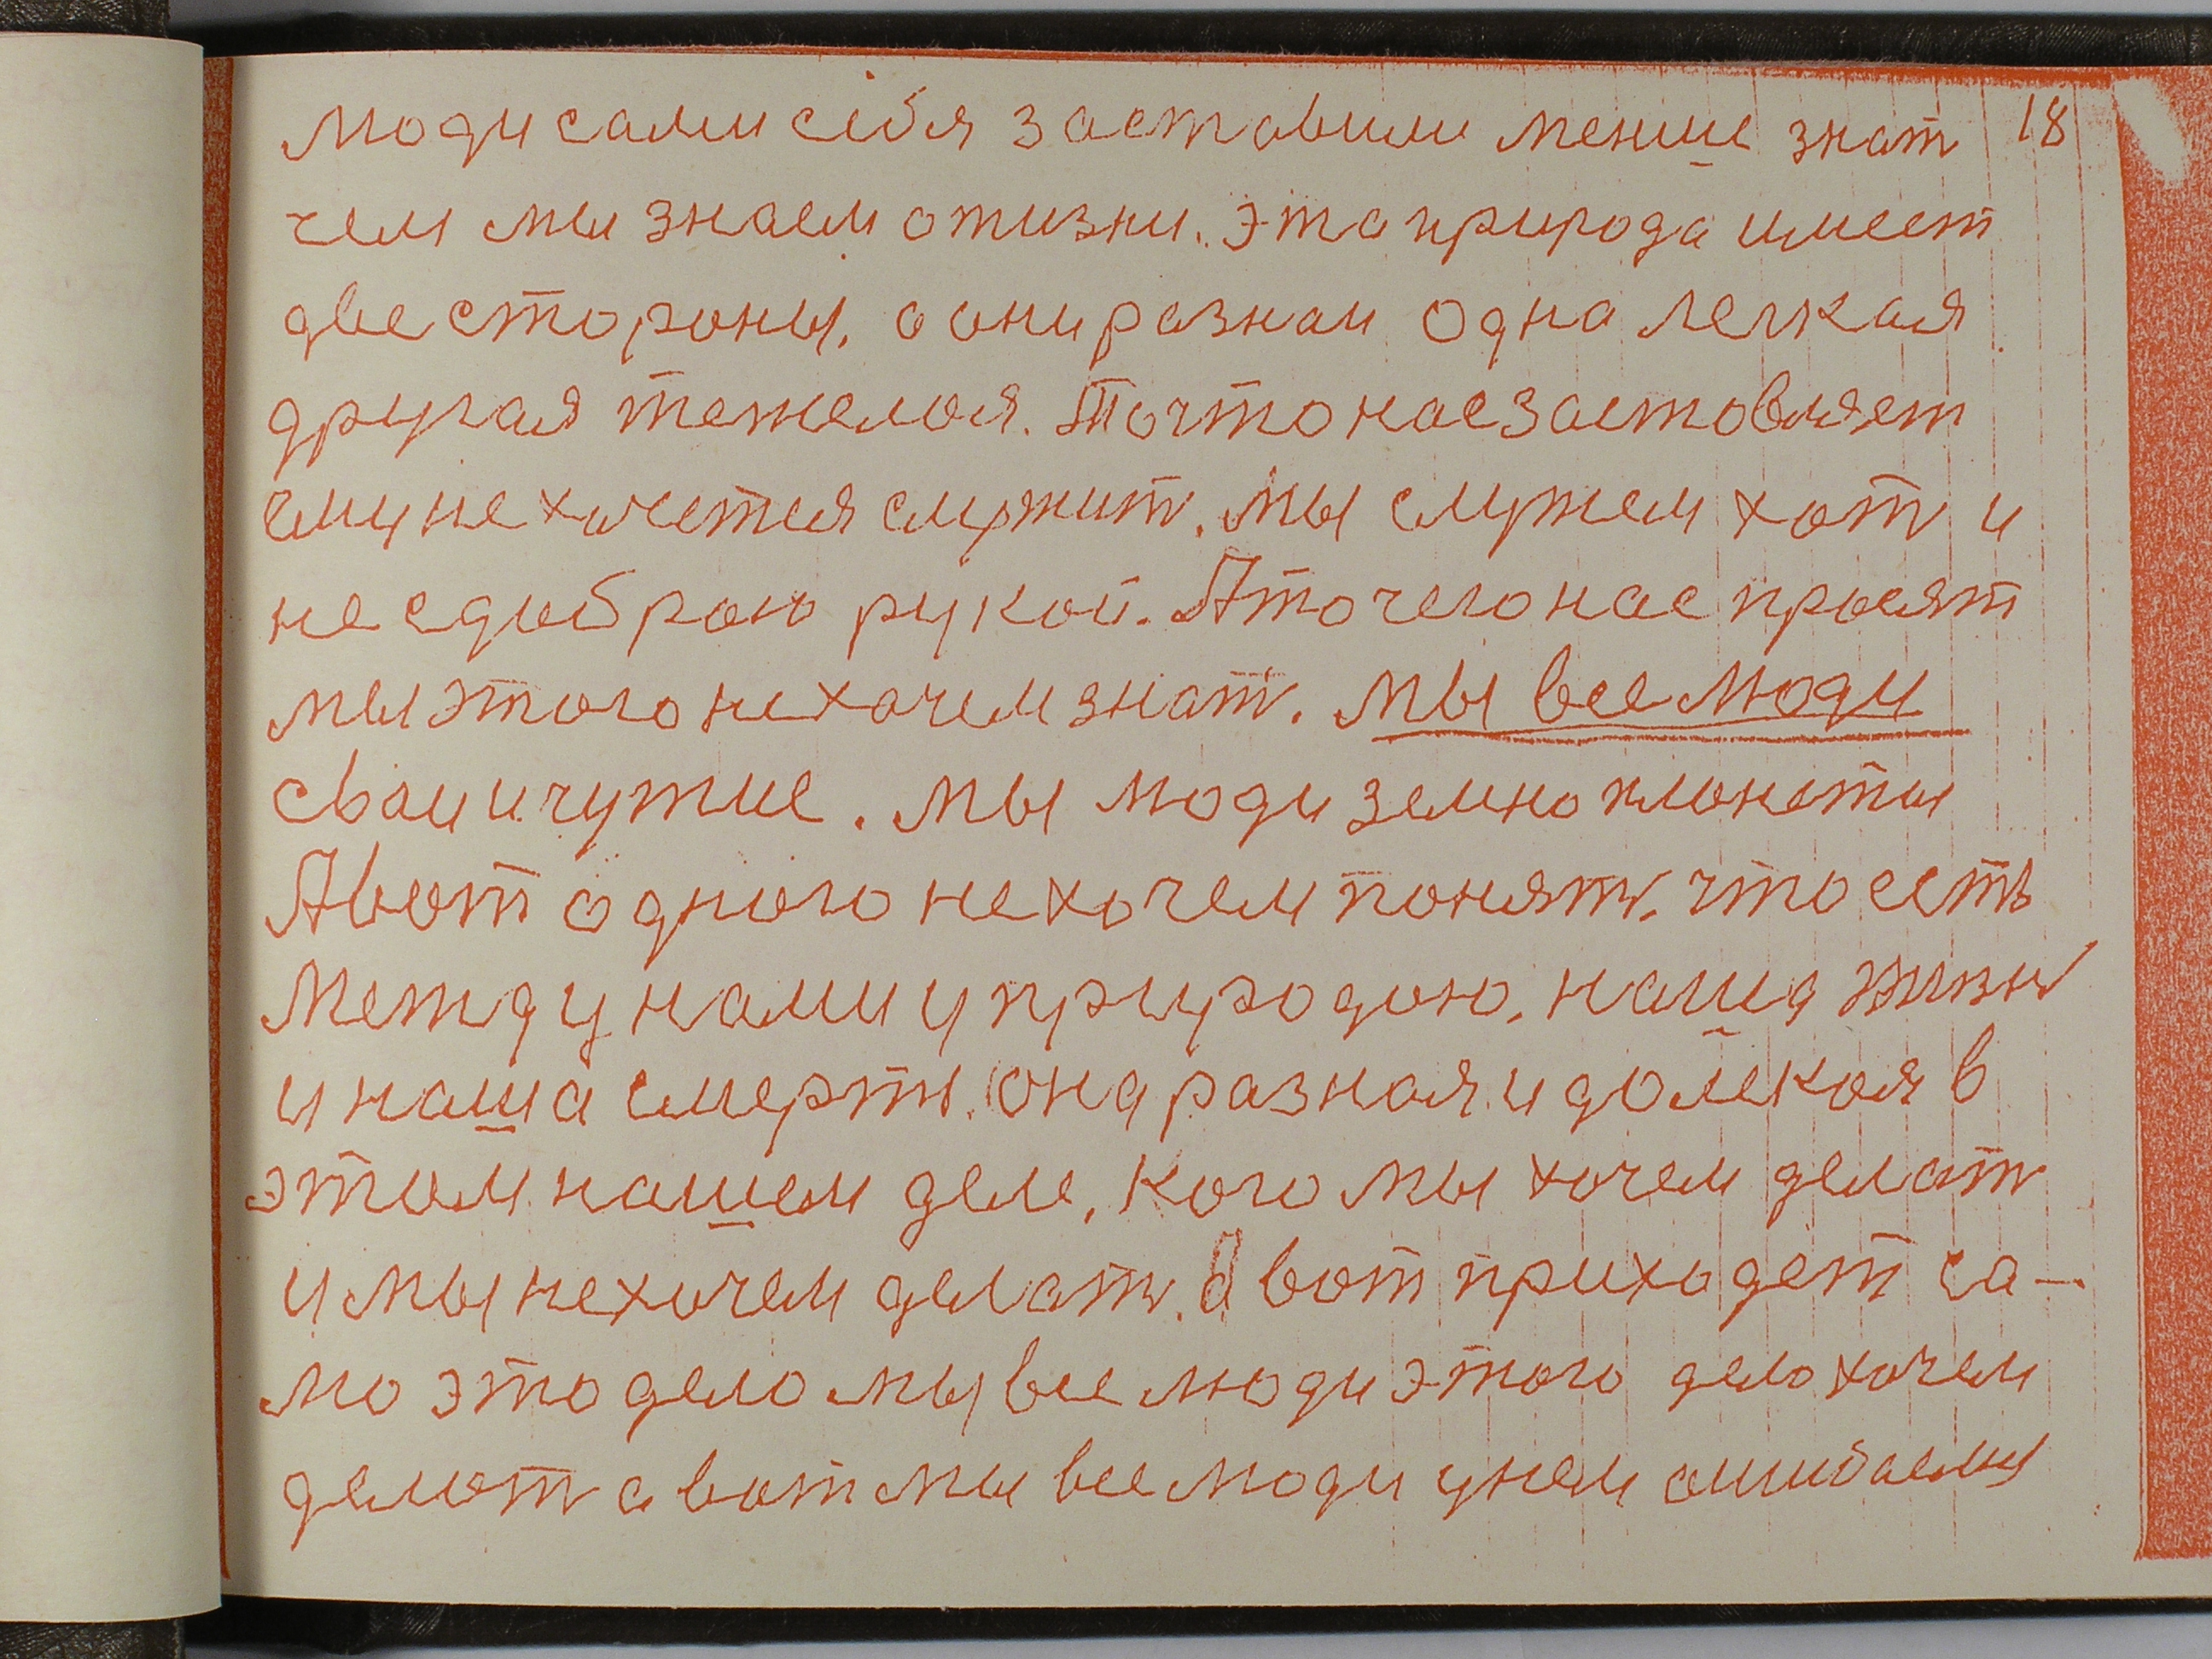 люди сами себя заставили менше знать 18
чем мы знаем о жизни. Эта природа имеет
две стороны, а они разнаи одна легкая
другая тежелая. То что нас заставляет
ему не хочется служить. Мы служем хоть и
не сдоброю рукой. А то чего нас просят
мы этого не хочем знать. Мы все люди
сваи и чужие. Мы люди земно планеты
А вот одного не хочем понять, что есть
между нами у природою, наша жизнь
и наша смерть. она разная и далекая в
этом нашем деле, кого мы хочем делать
и мы не хочем делать. а вот приходет са-
мо это дело мы все люди этого дело хочем
делать а вот мы все люди у нем ошибаемы